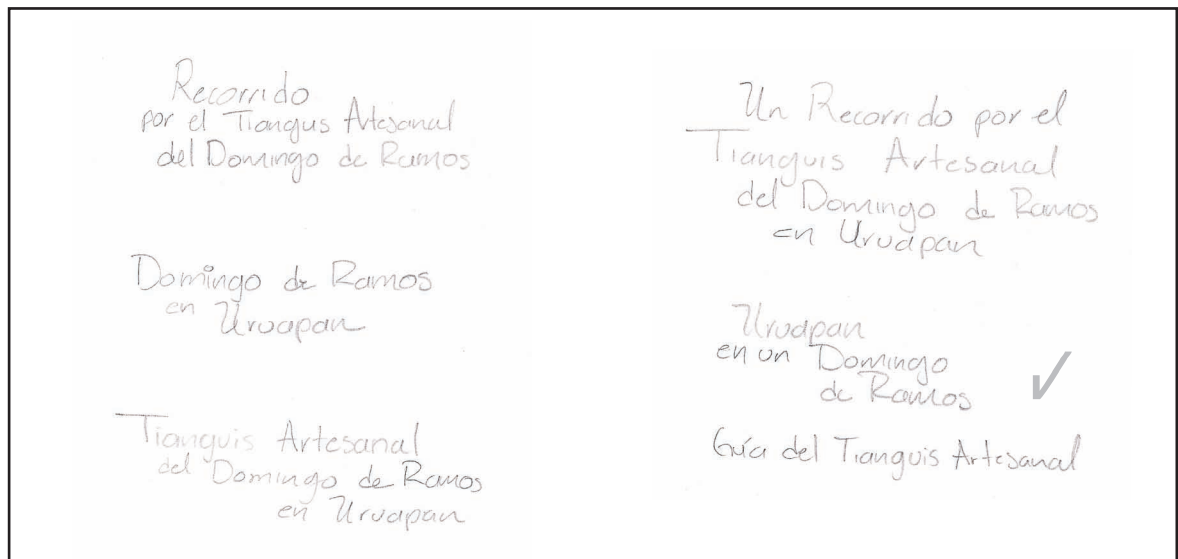 Recorrido
por el Tiangus Artesanal
del Domingo de Ramos
Domingo de Ramos
en Uruapan
Tianguis Artesanal
del Domingo de Ramos
en Uruapan
Un Recorrido por el
Tianguis Artesanal
del Domingo de Ramos
en Uruapan
Uruapan
en un Domingo
de Ramos
Guía del Tianguis Artesanal